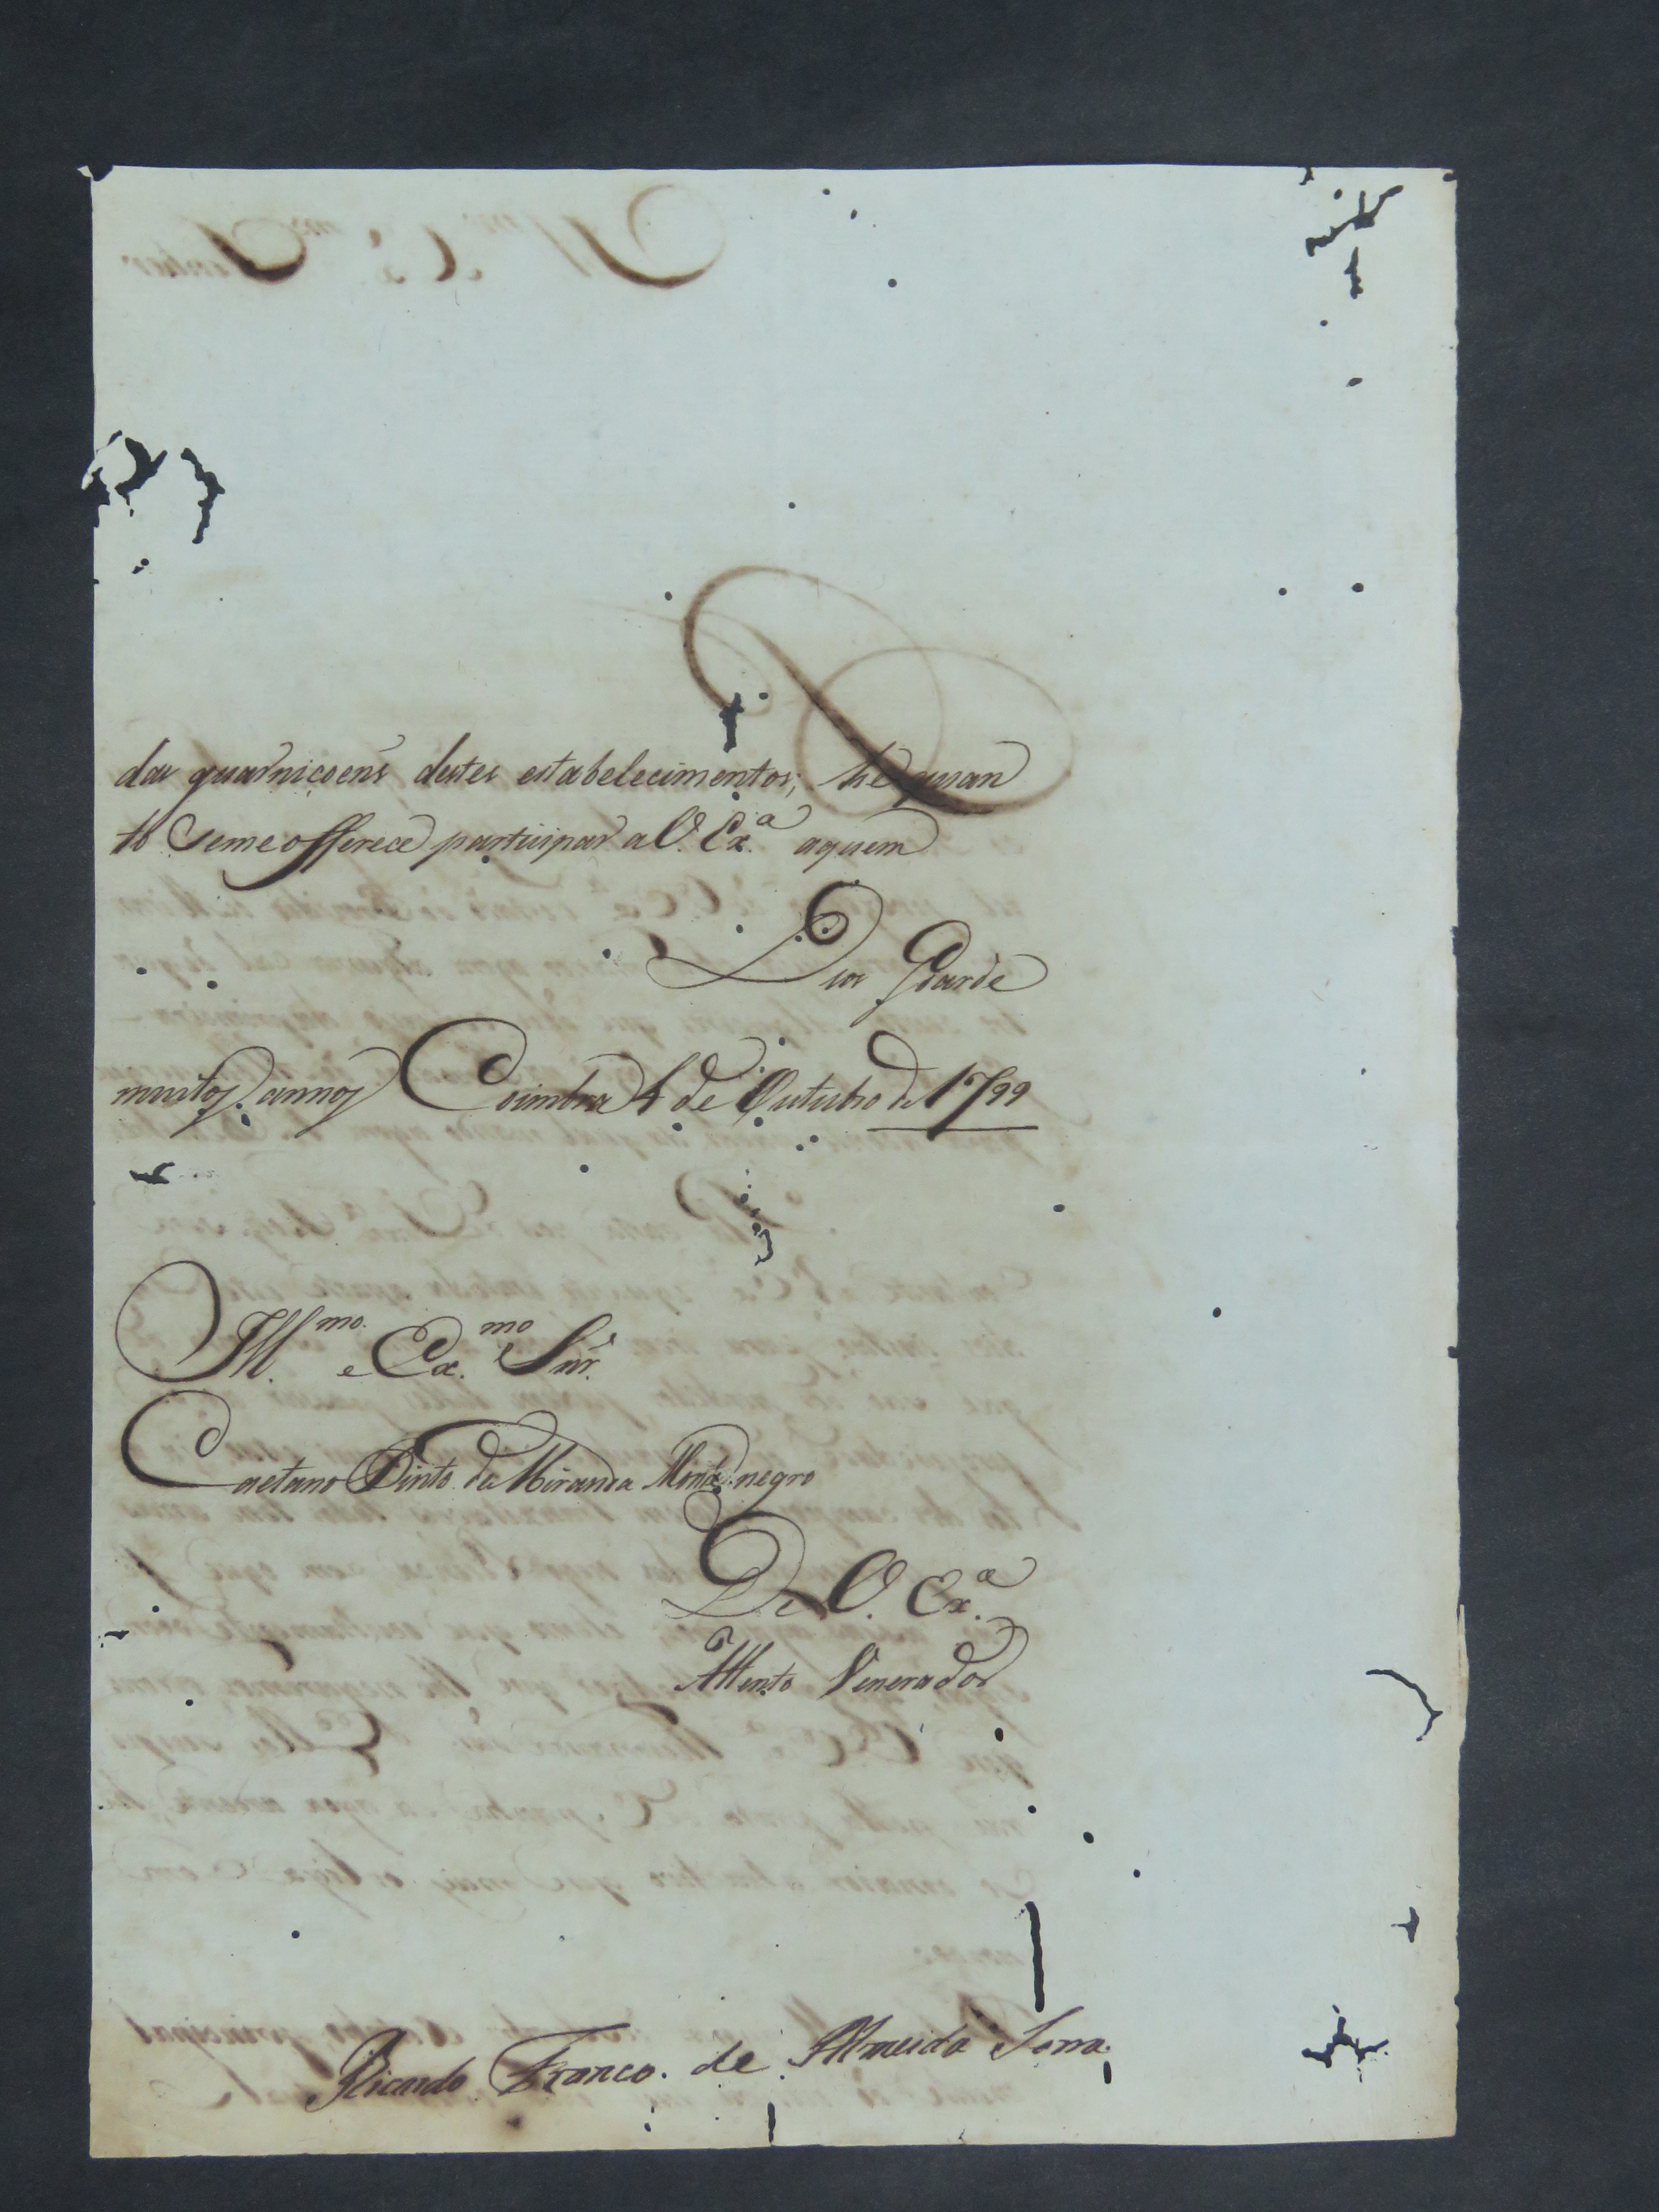 das guarnicoens destes estabelecimentos; he quan
to se me offerece participar a V. Ex.ª aquem
Deos Guarde
muitos annos Coimbra 4 de Outubro de 1799
Ill.mo e Ex.mo Snr.
Caetano Pinto de Miranda Monte negro
De V. Ex.ª
Attento Venerador
Ricardo Franco de Almeida Serra.